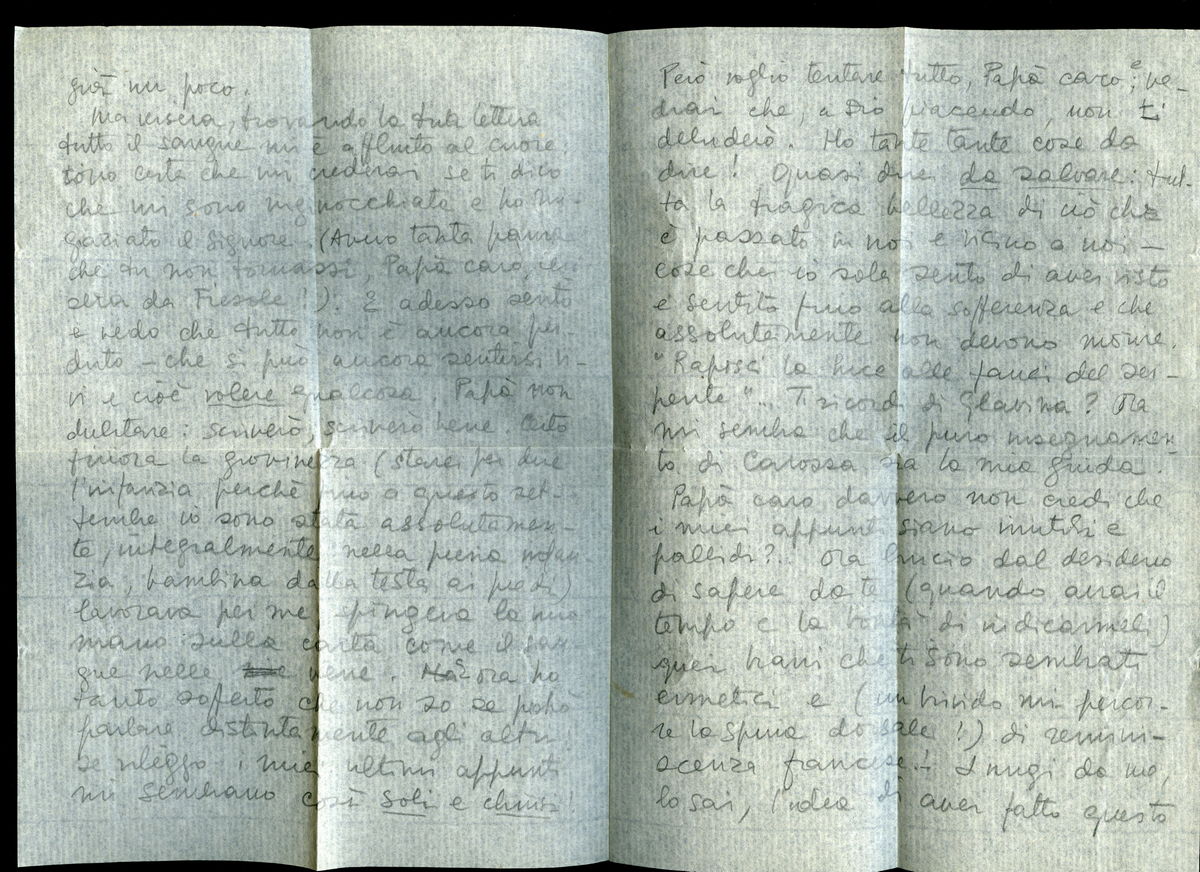 già un poco.
Ma iersera, trovando la tua lettera
tutto il sangue mi è affluito al cuore:
sono certa che mi crederai se ti dico
che mi sono inginocchiata e ho rin-
graziato il Signore. (Avevo tanta paura
che tu non tornassi, Papà caro, ieri
sera da Fiesole!). E adesso sento
e vedo che tutto non è ancora per-
duto – che si può ancora sentirsi vi-
vi e cioè volere qualcosa. Papà non
dubitare: scriverò, scriverò bene. Certo
finora la giovinezza (starei per dire
l'infanzia perchè fino a questo set-
tembre io sono stata assolutamen-
te, integralmente nella piena infan-
zia, bambina dalla testa ai piedi)
lavorava per me – spingeva la mia
mano sulla carta come il san-
gue nelle vene. E ora ho
tanto sofferto che non so se potrò
parlare distintamente agli altri:
se rileggo i miei ultimi appunti
mi sembrano così soli e chiusi!
Però voglio tentare tutto, Papà caro, e ve-
drai che, a Dio piacendo, non ti
deluderò. Ho tante tante cose da
dire! Quasi direi da salvare: tut-
ta la tragica bellezza di ciò che
è passato in noi e vicino a noi –
cose che io sola sento di aver visto
e sentito fino alla sofferenza e che
assolutamente non devono morire.
"Rapisci la luce alle fauci del ser-
pente"... Ti ricordi di Glavina? Ora
mi sembra che il puro insegnamen-
to di Carossa sia la mia guida.
Papà caro davvero non credi che
i miei appunti siano inutili e
pallidi?.. Ora brucio dal desiderio
di sapere da te (quando avrai il
tempo e la bontà di indicarmeli)
quei brani che ti sono sembrati
ermetici e (un brivido mi percor-
re la spina dorsale!) di remini-
scenza francese! – Lungi da me,
lo sai, l'idea di aver fatto questo